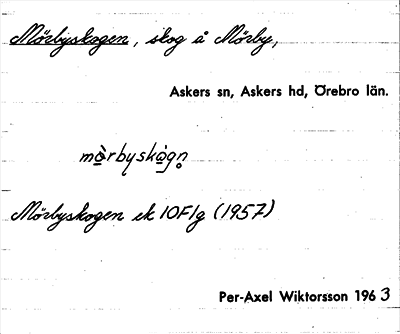 Mörbyskogen, skog å Mörby,
Askers sn, Askers hd, Örebro län.
mò̲rbyskò̲gn̥
Mörbyskogen ek 10F1g (1957)
Per-Axel Wiktorsson 1963